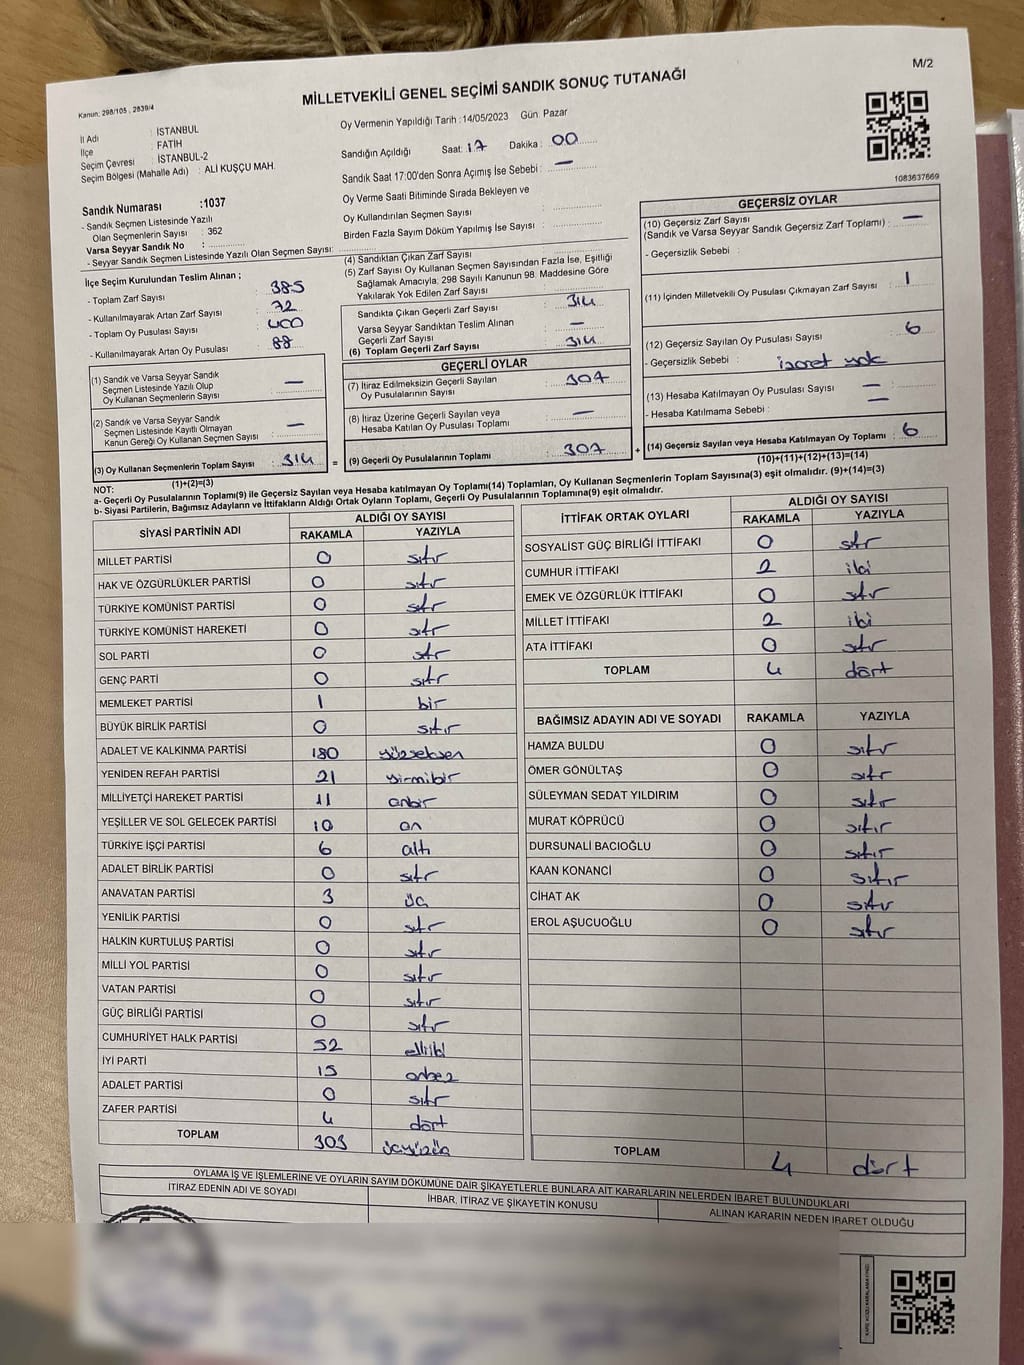 M/2
Kanun: 298/105 , 2839/4
MİLLETVEKİLİ GENEL SEÇİMİ SANDIK SONUÇ TUTANAĞI
İl Adı : İSTANBUL
İlçe : FATİH
Seçim Çevresi : İSTANBUL-2
Seçim Bölgesi (Mahalle Adı) : ALİ KUŞÇU MAH.
Sandık Numarası :1037
- Sandık Seçmen Listesinde Yazılı
Olan Seçmenlerin Sayısı : 362
Varsa Seyyar Sandık No :
- Seyyar Sandık Seçmen Listesinde Yazılı Olan Seçmen Sayısı:
Oy Vermenin Yapıldığı Tarih :14/05/2023 Gün: Pazar
Sandığın Açıldığı Saat: 17 Dakika : 00
Sandık Saat 17:00'den Sonra Açımış İse Sebebi : —
Oy Verme Saati Bitiminde Sırada Bekleyen ve
Oy Kullandırılan Seçmen Sayısı :
Birden Fazla Sayım Döküm Yapılmış İse Sayısı :
1083637669
İlçe Seçim Kurulundan Teslim Alınan ;
- Toplam Zarf Sayısı : 385
- Kullanılmayarak Artan Zarf Sayısı : 72
- Toplam Oy Pusulası Sayısı : 400
- Kullanılmayarak Artan Oy Pusulası : 88
(1) Sandık ve Varsa Seyyar Sandık
Seçmen Listesinde Yazılı Olup
Oy Kullanan Seçmenlerin Sayısı : —
(2) Sandık ve Varsa Seyyar Sandık
Seçmen Listesinde Kayıtlı Olmayan
Kanun Gereği Oy Kullanan Seçmen Sayısı : —
(3) Oy Kullanan Seçmenlerin Toplam Sayısı : 314
(1)+(2)=(3)
(4) Sandıktan Çıkan Zarf Sayısı :
(5) Zarf Sayısı Oy Kullanan Seçmen Sayısından Fazla İse, Eşitliği
Sağlamak Amacıyla, 298 Sayılı Kanunun 98. Maddesine Göre
Yakılarak Yok Edilen Zarf Sayısı :
Sandıkta Çıkan Geçerli Zarf Sayısı : 314
Varsa Seyyar Sandıktan Teslim Alınan
Geçerli Zarf Sayısı : —
(6) Toplam Geçerli Zarf Sayısı : 314
GEÇERLİ OYLAR
(7) İtiraz Edilmeksizin Geçerli Sayılan
Oy Pusulalarının Sayısı : 307
(8) İtiraz Üzerine Geçerli Sayılan veya
Hesaba Katılan Oy Pusulası Toplamı : —
= (9) Geçerli Oy Pusulalarının Toplamı : 307
GEÇERSİZ OYLAR
(10) Geçersiz Zarf Sayısı
(Sandık ve Varsa Seyyar Sandık Geçersiz Zarf Toplamı) : —
- Geçersizlik Sebebi :
(11) İçinden Milletvekili Oy Pusulası Çıkmayan Zarf Sayısı : 1
(12) Geçersiz Sayılan Oy Pusulası Sayısı : 6
- Geçersizlik Sebebi : işaret yok
(13) Hesaba Katılmayan Oy Pusulası Sayısı : —
- Hesaba Katılmama Sebebi : —
+ (14) Geçersiz Sayılan veya Hesaba Katılmayan Oy Toplamı : 6
(10)+(11)+(12)+(13)=(14)
NOT:
a- Geçerli Oy Pusulalarının Toplamı(9) ile Geçersiz Sayılan veya Hesaba katılmayan Oy Toplamı(14) Toplamları, Oy Kullanan Seçmenlerin Toplam Sayısına(3) eşit olmalıdır. (9)+(14)=(3)
b- Siyasi Partilerin, Bağımsız Adayların ve İttifakların Aldığı Ortak Oyların Toplamı, Geçerli Oy Pusulalarının Toplamına(9) eşit olmalıdır.
SİYASİ PARTİNİN ADI ALDIĞI OY SAYISI
RAKAMLA YAZIYLA
MİLLET PARTİSİ 0 sıfır
HAK VE ÖZGÜRLÜKLER PARTİSİ 0 sıfır
TÜRKİYE KOMÜNİST PARTİSİ 0 sıfır
TÜRKİYE KOMÜNİST HAREKETİ 0 sıfır
SOL PARTİ 0 sıfır
GENÇ PARTİ 0 sıfır
MEMLEKET PARTİSİ 1 bir
BÜYÜK BİRLİK PARTİSİ 0 sıfır
ADALET VE KALKINMA PARTİSİ 180 yüzseksen
YENİDEN REFAH PARTİSİ 21 yirmibir
MİLLİYETÇİ HAREKET PARTİSİ 11 onbir
YEŞİLLER VE SOL GELECEK PARTİSİ 10 on
TÜRKİYE İŞÇİ PARTİSİ 6 altı
ADALET BİRLİK PARTİSİ 0 sıfır
ANAVATAN PARTİSİ 3 üç
YENİLİK PARTİSİ 0 sıfır
HALKIN KURTULUŞ PARTİSİ 0 sıfır
MİLLİ YOL PARTİSİ 0 sıfır
VATAN PARTİSİ 0 sıfır
GÜÇ BİRLİĞİ PARTİSİ 0 sıfır
CUMHURİYET HALK PARTİSİ 52 elliiki
İYİ PARTİ 15 onbeş
ADALET PARTİSİ 0 sıfır
ZAFER PARTİSİ 4 dört
TOPLAM 303 üçyüzüç
İTTİFAK ORTAK OYLARI ALDIĞI OY SAYISI
RAKAMLA YAZIYLA
SOSYALİST GÜÇ BİRLİĞİ İTTİFAKI 0 sıfır
CUMHUR İTTİFAKI 2 iki
EMEK VE ÖZGÜRLÜK İTTİFAKI 0 sıfır
MİLLET İTTİFAKI 2 iki
ATA İTTİFAKI 0 sıfır
TOPLAM 4 dört
BAĞIMSIZ ADAYIN ADI VE SOYADI RAKAMLA YAZIYLA
HAMZA BULDU 0 sıfır
ÖMER GÖNÜLTAŞ 0 sıfır
SÜLEYMAN SEDAT YILDIRIM 0 sıfır
MURAT KÖPRÜCÜ 0 sıfır
DURSUNALİ BACIOĞLU 0 sıfır
KAAN KONANCİ 0 sıfır
CİHAT AK 0 sıfır
EROL AŞUCUOĞLU 0 sıfır
TOPLAM 4 dört
OYLAMA İŞ VE İŞLEMLERİNE VE OYLARIN SAYIM DÖKÜMÜNE DAİR ŞİKAYETLERLE BUNLARA AİT KARARLARIN NELERDEN İBARET BULUNDUKLARI
İTİRAZ EDENİN ADI VE SOYADI İHBAR, İTİRAZ VE ŞİKAYETİN KONUSU ALINAN KARARIN NEDEN İBARET OLDUĞU